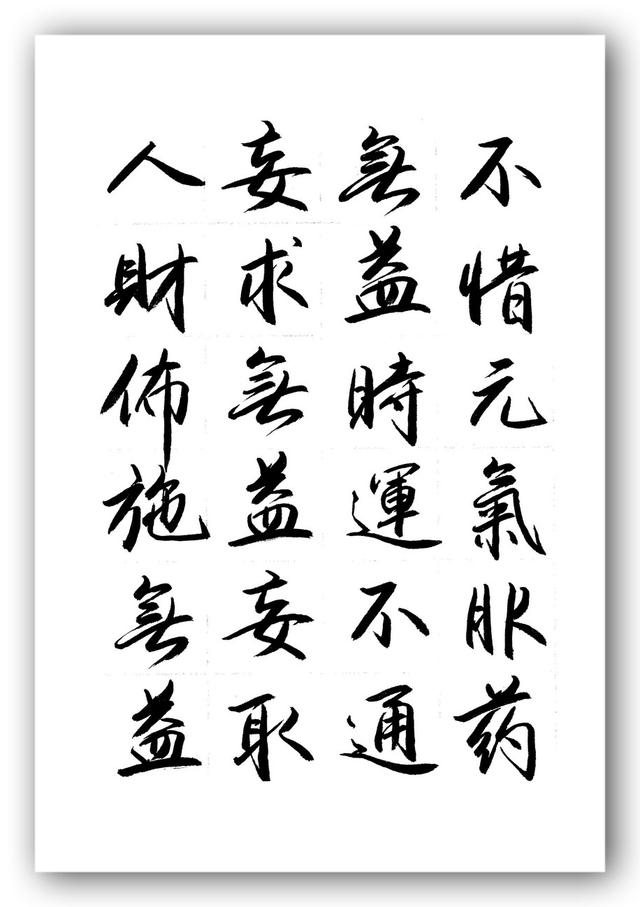 不惜元氣服药
無益時運不通
妄求無益妄取
人財佈施無益